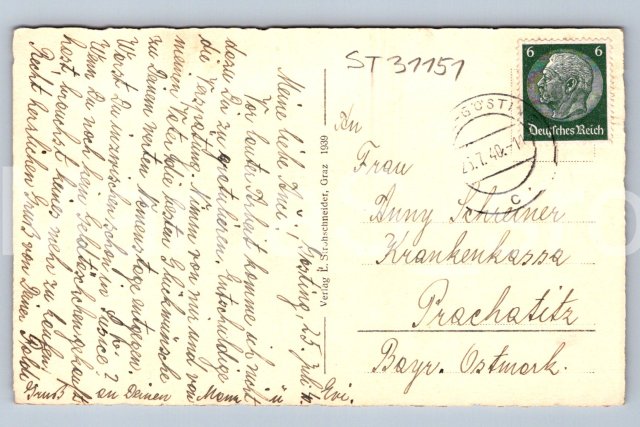 ST 31151
6 6
Deutsches Reich
GÖSTI
25.7.40
Verlag E. Strohschneider, Graz 1939
An
Frau
Anny Schreiner
Krankenkassa
Prachatitz
Bayr. Ostmark.
Gösting, 25. Juli 40.
Meine liebe Anni!
Vor lauter Arbeit komme ich nicht
dazu Dir zu gratulieren. Entschuldige
die Verspätung. Nimm von mir und von
meinem Vater die besten Glückwünsche
zu Deinem werten Namenstage entgegen.
Warst Du inzwischen schon in
Wenn Du noch kein gekauft
hast, brauchst keines mehr zu kaufen.
Recht herzlichen Gruß von Deiner
Gruß an Deinen Mann u. Evi.